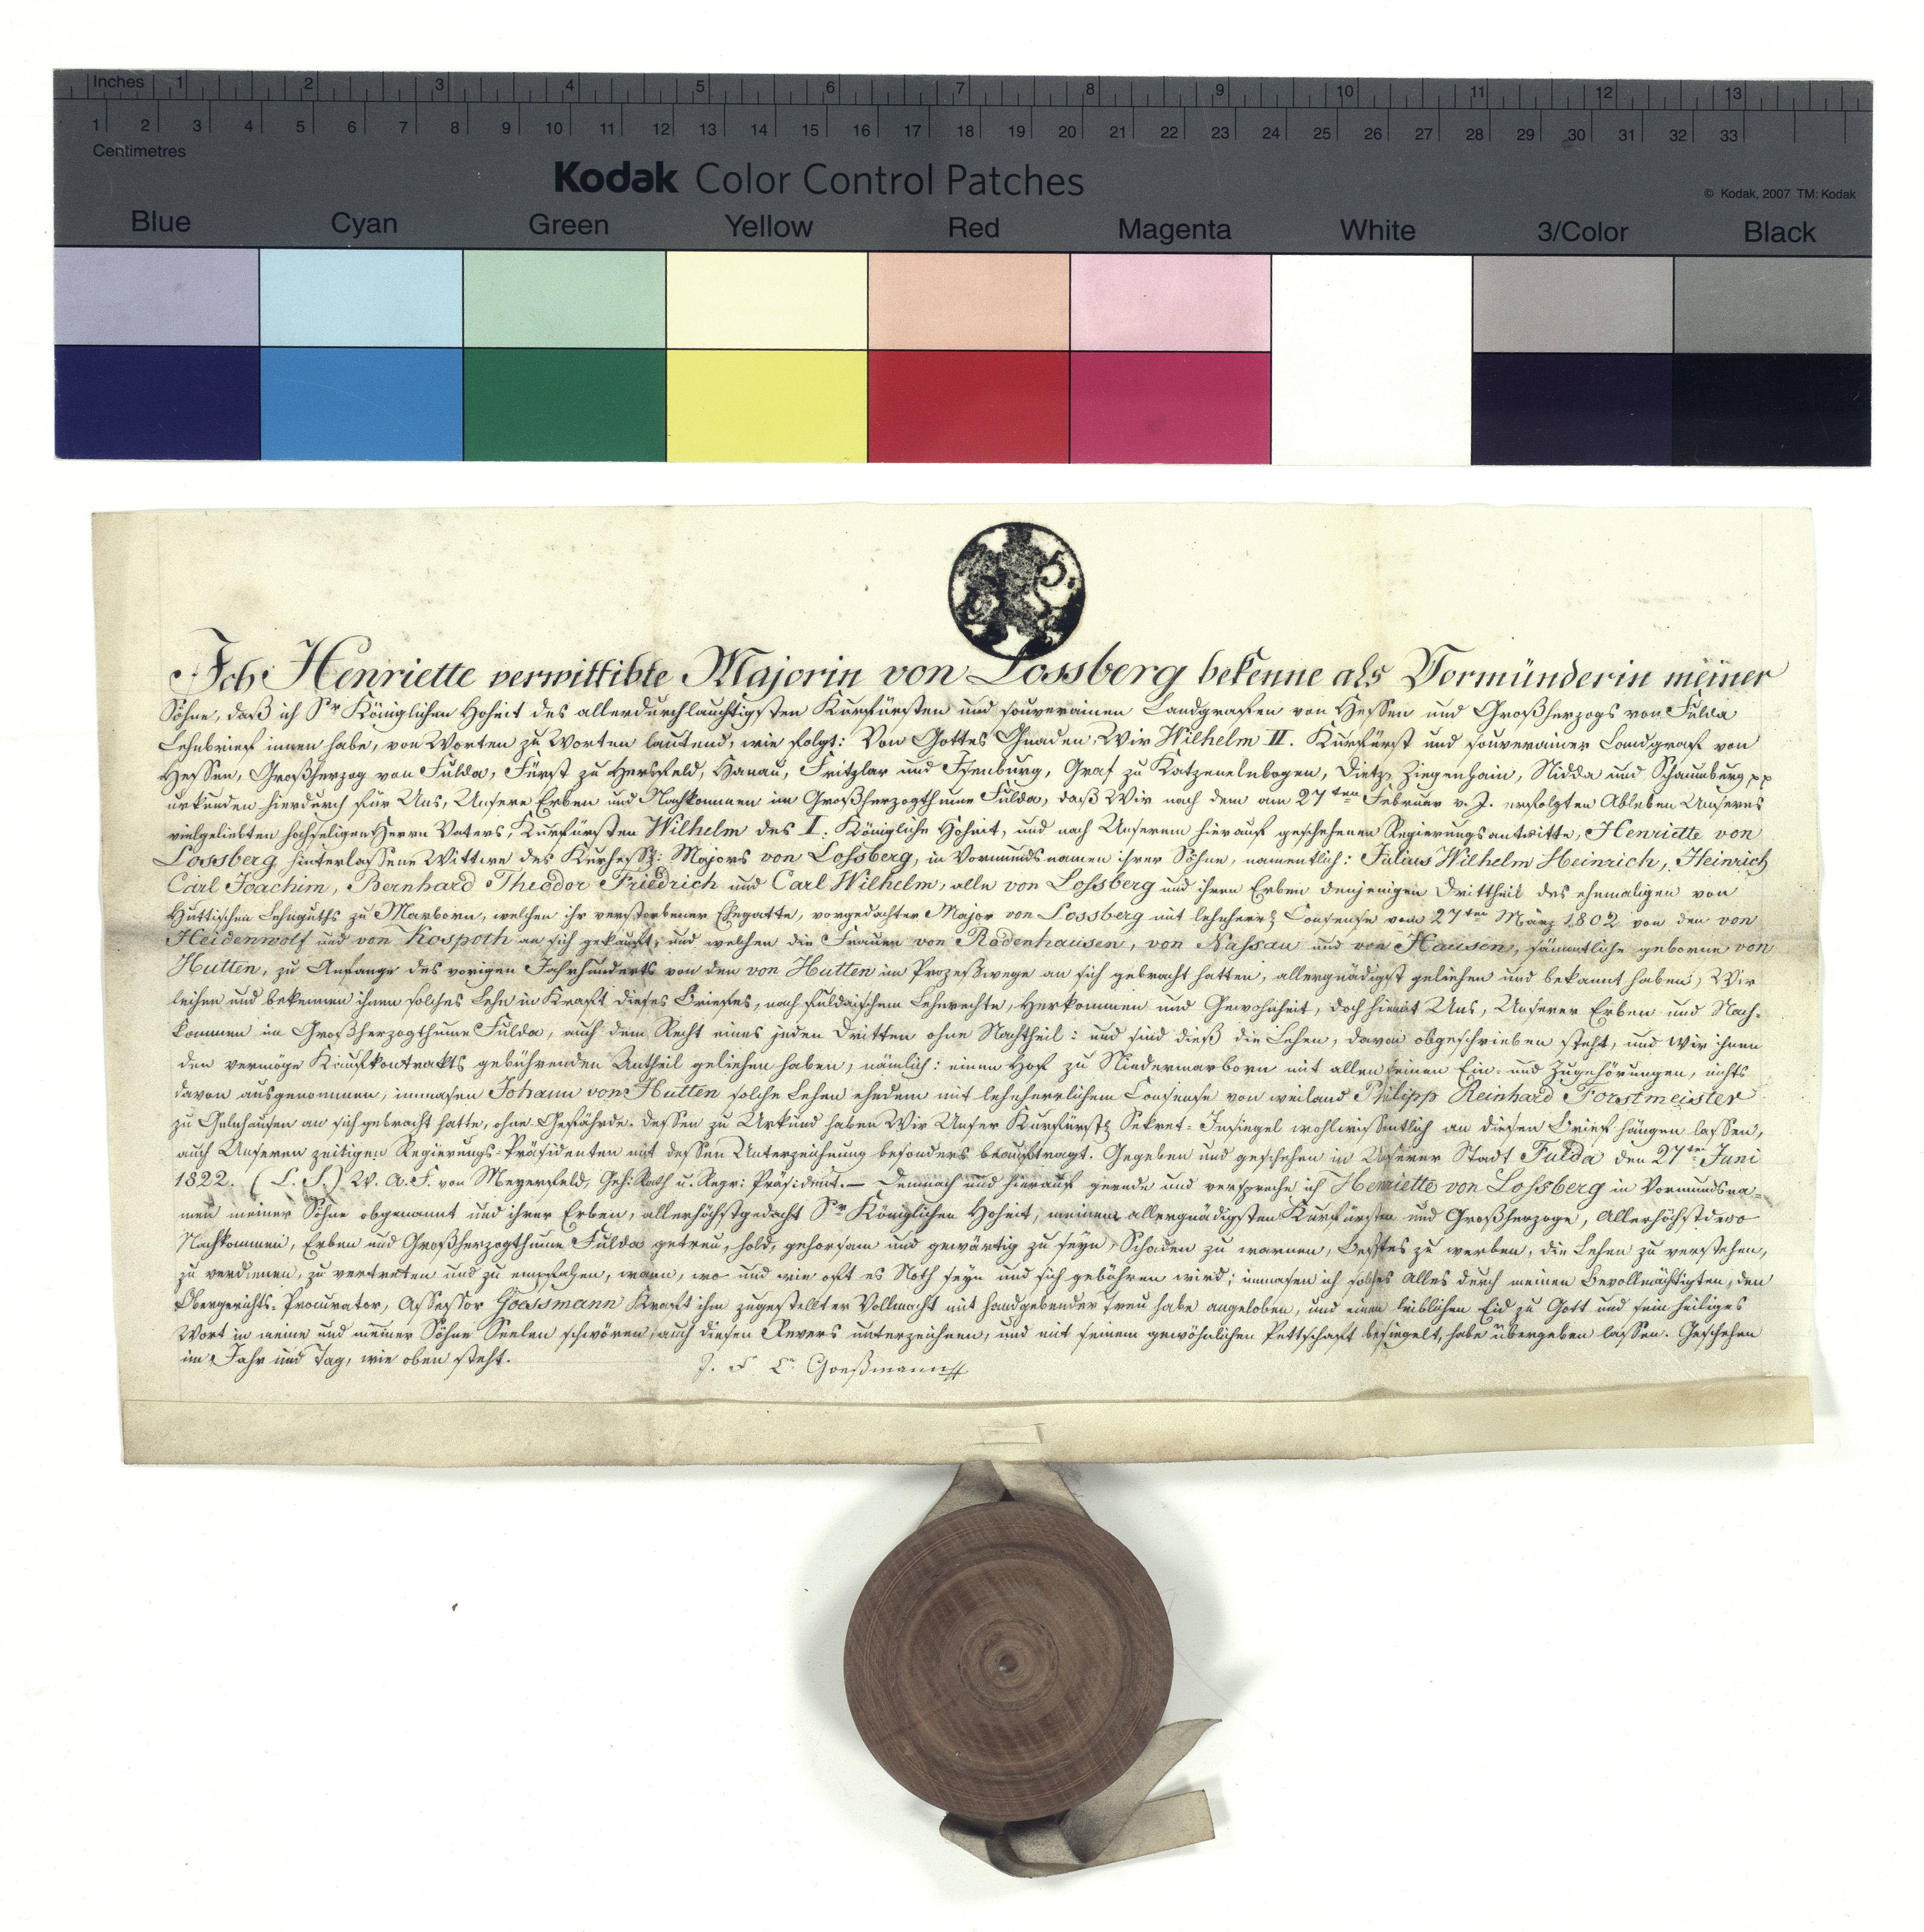 Inches 1 2 3 4 5 6 7 8 9 10 11 12 13
1 2 3 4 5 6 7 8 9 10 11 12 13 14 15 16 17 18 19 20 21 22 23 24 25 26 27 28 29 30 31 32 33
Centimetres
Kodak Color Control Patches
© Kodak, 2007 TM: Kodak
Blue Cyan Green Yellow Red Magenta White 3/Color Black
Ich Henriette verwittibte Majorin von Lossberg bekenne als Vormünderin meiner
Söhne, daß ich Sr Königlichen Hoheit des allerdurchlauchtigsten Kurfürsten und souverainen Landgrafen von Hessen und Großherzogs von Fulda
Lehnbrief innen habe, von Worten zu Worten lautend, wie folgt: Von Gottes Gnaden Wir Wilhelm II. Kurfürst und souverainer Landgraf von
Hessen, Großherzog von Fulda, Fürst zu Hersfeld, Hanau, Fritzlar und Isenburg, Graf zu Katzenelnbogen, Dietz, Ziegenhain, Nidda und Schaumburg pp
urkunden hierdurch für Uns, Unsere Erben und Nachkommen im Großherzogthume Fulda, daß Wir nach dem am 27ten Februar v. J. erfolgten Ableben Unseres
vielgeliebten hochseligen Herrn Vaters, Kurfürsten Wilhelm des I. Königliche Hoheit, und nach Unserem hierauf geschehenen Regierungsantritte, Henriette von
Lossberg hinterlassene Wittwe des Kurhess: Majors von Lossberg, in Vormundsnamen ihrer Söhne, namentlich: Julius Wilhelm Heinrich, Heinrich
Carl Joachim, Bernhard Theodor Friedrich und Carl Wilhelm, alle von Lossberg und ihren Erben denjenigen Drittheil des ehemaligen von
Huttischen Lehnguths zu Marborn, welchen ihr verstorbener Ehegatte, vorgedachter Major von Lossberg mit lehnherrl Consense vom 27ten März 1802 von den von
Heidenwolf und von Kospoth an sich gekauft, und welchen die Frauen von Rodenhausen, von Nassau und von Hausen, sämmtliche geborne von
Hutten, zu Anfange des vorigen Jahrhunderts von den von Hutten im Prozeßwege an sich gebracht hatten, allergnädigst geliehen und bekannt haben, Wir
leihen und bekennen ihnen solches Lehn in Kraft dieses Briefes, nach fuldaischem Lehnrechte, Herkommen und Gewohnheit, doch hiemit Uns, Unserer Erben und Nach-
kommen im Großherzogthume Fulda, auch dem Recht eines jeden Dritten ohne Nachtheil: und sind dieß die Lehen, davon obgeschrieben steht, und Wir ihnen
den vermöge Kaufkontrakts gebührenden Antheil geliehen haben, nämlich: einen Hof zu Niedermarborn mit allen seinen Ein- und Zugehörungen, nichts
davon ausgenommen, immasen Johann von Hutten solche Lehen ehedem mit lehnherrlichem Consense von weiland Philipp Reinhard Forstmeister
zu Gelnhausen an sich gebracht hatte, ohne Gefährde. Dessen zu Urkund haben Wir Unser Kurfürstl Sekret-Insiegel wohlwissentlich an diesen Brief hängen lassen,
auch Unseren zeitigen Regierungs-Präsidenten mit dessen Unterzeichnung besonders beauftragt. Gegeben und geschehen in Unserer Stadt Fulda den 27ten Juni
1822. (L. S.) W. A. F. von Meyerfeld, Geh: Rath u. Regr: Präsident. — Demnach und hierauf gerede und verspreche ich Henriette von Lossberg in Vormundsna-
men meiner Söhne obgenannt und ihrer Erben, allerhöchstgedacht Sr Königlichen Hoheit, meinem allergnädigsten Kurfürsten und Großherzoge, Allerhöchstdero
Nachkommen, Erben und Großherzogthume Fulda getreu, hold, gehorsam und gewärtig zu seyn, Schaden zu warnen, Bestes zu werben, die Lehen zu verstehen,
zu verdienen, zu vertreten und zu empfahen, wann, wo und wie oft es Noth seyn und sich gebühren wird; immasen ich solches Alles durch meinen Bevollmächtigten, den
Obergerichts-Procurator, Assessor Goessmann Kraft ihm zugestellter Vollmacht mit handgebender Treu habe angeloben, und einen leiblichen Eid zu Gott und sein heiliges
Wort in meine und meiner Söhne Seelen schwören, auch diesen Revers unterzeichnen, und mit seinem gewöhnlichen Pettschaft besiegelt, habe übergeben lassen. Geschehen
im Jahr und Tag, wie oben steht.
J. F. Goeßmann